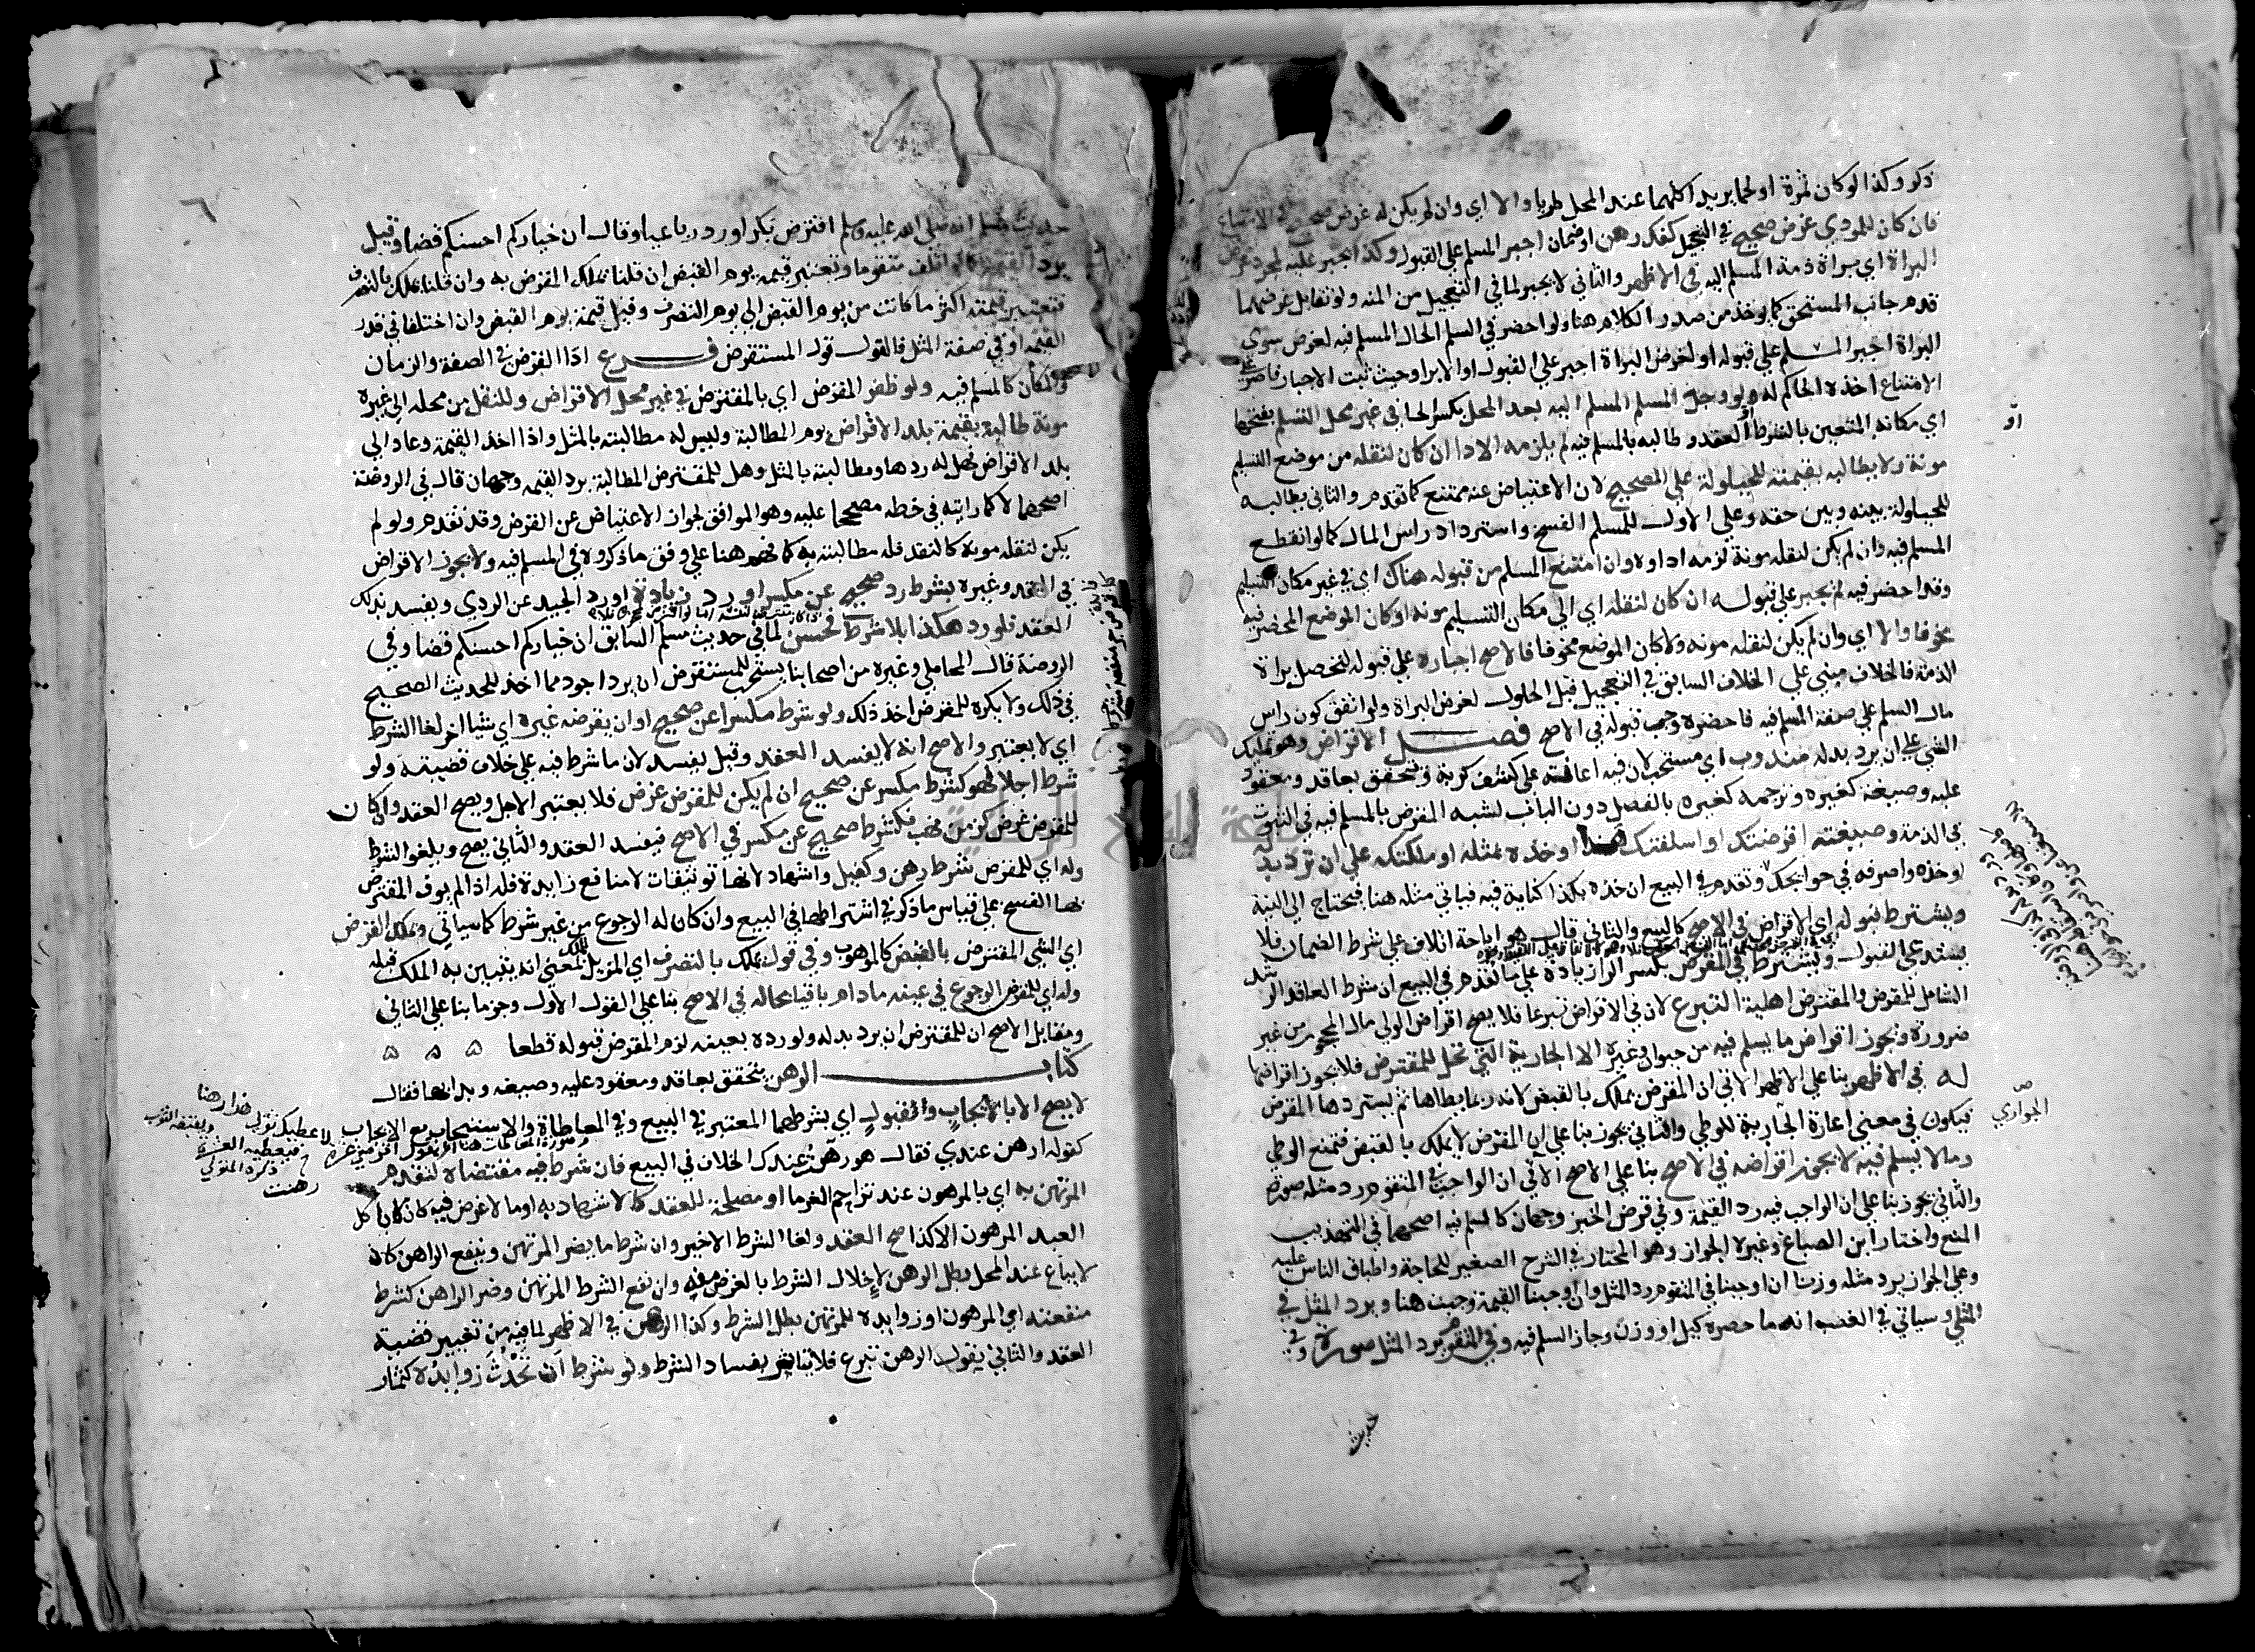 ذكر وكذا لو كان ثمرة او لحما يريد اكلهما عند المحل طريا والا اي وان لم يكن له غرض صحيح في الامتناع
فان كان للمودي غرض صحيح في التعجيل كفك رهن او ضمان اجبر المسلم علي القبول وكذا يجبر عليه لمجرد غرض
البراة اي براة ذمة المسلم اليه في الاظهر والثاني لا يجبر لما في التعجيل من المنه ولو تقابل غرضهما
قدم جانب المستحق كما يوخذ من صدر الكلام هنا ولو احضر في السلم الحال المسلم فيه لغرض سوي
البراة اجبر المسلم علي قبوله او لغرض البراة اجبر علي القبول او الابرا وحيث ثبت الاجبار فاصر علي
الامتناع اخذه الحاكم له ولو وجد المسلم المسلم اليه بعد المحل بكسر الحا في غير محل التسليم بفتحها
اي مكانه المتعين بالشرط او العقد وطالبه بالمسلم فيه لم يلزمه الادا ان كان لنقله من موضع التسليم
مونة ولا يطالبه بقيمته للحيلولة علي الصحيح لان الاعتياض عنه ممتنع كما تقدم والثاني يطالبه
للحيلولة بينه وبين حقه وعلي الاول للمسلم الفسخ واسترداد راس المال كما لو انقطع
المسلم فيه وان لم يكن لنقله مونة لزمه اداوه وان امتنع المسلم من قبوله هناك اي في غير مكان التسليم
وقد احضر فيه لم يجبر علي قبوله ان كان لنقله اي الي مكان التسليم مونه او كان الموضع المحضر فيه
مخوفا والا اي وان لم يكن لنقله مونه ولا كان الموضع مخوفا فالاصح اجباره علي قبوله لتحصل براة
الذمة فالخلاف مبني علي الخلاف السابق في التعجيل قبل الحلول لغرض البراة ولو اتفق كون راس
مال السلم علي صفة المسلم فيه فاحضره وجب قبوله في الاصح فصل الاقراض وهو تمليك
الشي علي ان يرد بدله مندوب اي مستحب لان فيه اعانة علي كشف كربة ويتحقق بعاقد ومعقود
عليه وصيغة كغيره وترجمه كغيره بالفصل دون الباب لشبه القرض بالمسلم فيه في الثبوت
في الذمة وصيغته اقرضتك او اسلفتك هذا او خذه بمثله او ملكتكه علي ان ترد بدله
او خذه واصرفه في حوايجك وتقدم في البيع ان خذه بكذا كناية فيه فياتي مثله هنا فيحتاج الي النية
ويشترط قبوله اي الاقراض في الاصح كالبيع والثاني قال هو اباحة اتلاف علي شرط الضمان فلا
يستدعي القبول ويشترط في المقرض بكسر الرا زيادة علي ما تقدم في البيع ان شرط العاقد الرشد
الشامل للمقرض والمقترض اهلية التبرع لان في الاقراض تبرعا فلا يصح اقراض الولي مال المحجور من غير
ضرورة ويجوز اقراض ما يسلم فيه من حيوان وغيره الا الجارية التي تحل للمقترض فلا يجوز اقراضها
له في الاظهر بنا علي الاظهر الاتي ان المقرض يملك بالقبض لانه ربما يطاها ثم يستردها المقرض
فيكون في معني اعارة الجارية للوطي والثاني يجوز بنا علي ان المقرض لا يملك بالقبض فتمنع الوطي
وما لا يسلم فيه لا يجوز اقراضه في الاصح بنا علي الاصح الاتي ان الواجب في المتقوم رد مثله صورة
والثاني يجوز بنا علي ان الواجب فيه رد القيمة وفي قرض الخبز وجهان كالسلم فيه اصحهما في التهذيب
المنع واختار ابن الصباغ وغيره الجواز وهو المختار في الشرح الصغير للحاجة واطباق الناس عليه
وعلي الجواز يرد مثله وزنا ان اوجبنا في المتقوم رد المثل وان اوجبنا القيمة وجبت هنا ويرد المثل في
المثلي وسياتي في الغصب انه ما حصره كيل او وزن وجاز السلم فيه وفي المتقوم يرد المثل صورة وفي
حديث
الجواري
حديث مسلم انه صلى الله عليه وسلم اقترض بكرا ورد رباعيا وقال ان خياركم احسنكم قضا وقيل
يرد القيمة متقوما وتعتبر قيمه يوم القبض ان قلنا تملك المقرض به وان قلنا يملك بالتصرف
فتعتبر قيمته اكثر ما كانت من يوم القبض الي يوم التصرف وقيل قيمة يوم القبض وان اختلفا في قدر
القيمه او في صفة المثل فالقول قول المستقرض فرع ادا القرض في الصفة والزمان
والمكان كالمسلم فيه ولو ظفر المقرض اي بالمقترض في غير محل الاقراض وللنقل من محله الي غيره
مونة طالبه بقيمة بلد الاقراض يوم المطالبة وليس له مطالبته بالمثل واذا اخذ القيمة وعاد الي
بلد الاقراض فهل له ردها ومطالبته بالمثل وهل للمقترض المطالبة برد القيمه وجهان قال في الروضة
اصحهما لا كما رايته في خطه مصححا عليه وهو الموافق لجواز الاعتياض عن القرض وقد تقدم ولو لم
يكن لنقله مونة كالنقد فله مطالبته به كما فهم هنا علي وفق ما ذكروه في المسلم فيه ولا يجوز الاقراض
في النقد وغيره بشرط رد صحيح عن مكسر او رد زيادة او رد الجيد عن الردي ويفسد بذلك
العقد فلو رد هكذا بلا شرط فحسن لما في حديث مسلم السابق ان خياركم احسنكم قضا وفي
الروضة قال المحاملي وغيره من اصحابنا يستحب للمستقرض ان يرد اجود مما اخذ للحديث الصحيح
في ذلك ولا يكره للمقرض اخذ ذلك ولو شرط مكسرا عن صحيح او ان يقرضه غيره اي شيا اخر لغا الشرط
اي لا يعتبر والاصح انه لا يفسد العقد وقيل يفسد لان ما شرط فيه علي خلاف قضيته ولو
شرط اجلا فهو كشرط مكسر عن صحيح ان لم يكن للمقرض غرض فلا يعتبر الاجل ويصح العقد وان كان
للمقرض غرض كزمن نهب فكشرط صحيح عن مكسر في الاصح فيفسد العقد والثاني يصح ويلغو الشرط
وله اي للمقرض شرط رهن وكفيل واشهاد لانها توثيقات لا منافع زايدة فله اذا لم يوف المقترض
بها الفسخ علي قياس ما ذكر في اشتراطها في البيع وان كان له الرجوع من غير شرط كما سياتي ويملك القرض
اي الشي المقترض بالقبض كالموهوب وفي قول يملك بالتصرف اي المزيل للملك بمعني انه يتبين به الملك قبله
وله اي للمقرض الرجوع في عينه ما دام باقيا بحاله في الاصح بنا علي القول الاول وجزما بنا علي الثاني
ومقابل الاصح ان للمقترض ان يرد بدله ولو رده بعينه لزم المقرض قبوله قطعا ه ه ه
كتاب الرهن يتحقق بعاقد ومعقود عليه وصيغه وبدا بها فقال
لا يصح الا بالايجاب والقبول اي بشرطهما المعتبر في البيع وفي المعاطاة والاستيجاب مع الايجاب
كقوله ارهن عندي فقال هو رهن عندك الخلاف في البيع فان شرط فيه مقتضاه لتقدم
المرتهن به اي بالمرهون عند تزاحم الغرما او مصلحة للعقد كالاشهاد به او ما لا غرض فيه كان لا ياكل
العبد المرهون الا كذا صح العقد ولغا الشرط الاخير وان شرط ما يضر المرتهن وينفع الراهن كان
لا يباع عند المحل بطل الرهن لاخلال الشرط بالغرض منه وان نفع الشرط المرتهن وضر الراهن كشرط
منفعته اي المرهون او زوايده للمرتهن بطل الشرط وكذا الرهن في الاظهر لما فيه من تغيير قضية
العقد والثاني يقول الرهن تبرع فلا يتاثر بفساد الشرط ولو شرط ان تحدث زوايده كثمار